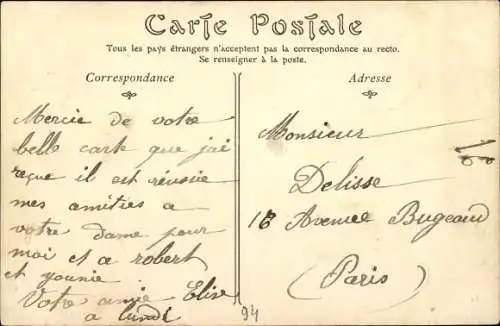 Carte Postale
Tous les pays étrangers n'acceptent pas la correspondance au recto.
Se renseigner à la poste.
Correspondance
Mercie de votre
belle carte que j'ai
reçue il est réussie
mes amitiés a
votre dame pour
moi et a robert
et younie.
Votre amie Elise
a lundi
Adresse
Monsieur
Delisse
18 Avenue Bugeaud
(Paris)
94